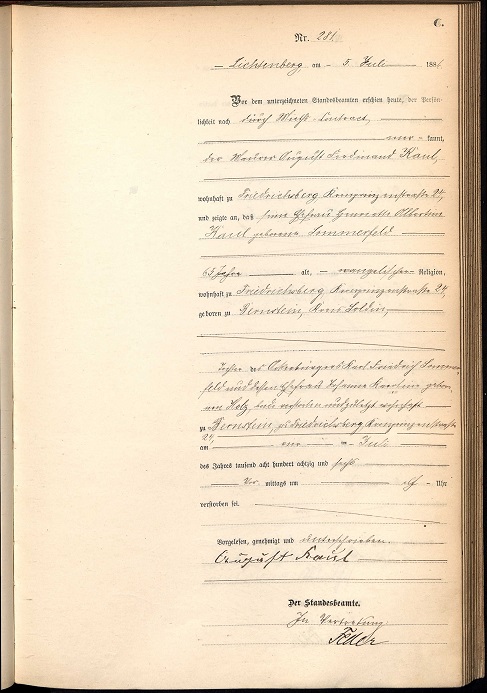 C.
Nr. 281
Lichtenberg, am 5 Juli 188
Vor dem unterzeichneten Standesbeamten erschien heute, der Persön-
lichkeit nach durch Mieths-Contract,
kannt,
der Maurer August Ferdinand Kaul,
wohnhaft zu Friedrichsberg Kronprinzenstrasse 24,
und zeigte an, daß seine Ehefrau Henriette Albertine
Kaul geborene Sommerfeld
65 Jahre alt, evangelischer Religion,
wohnhaft zu Friedrichsberg Kronprinzenstrasse 24,
geboren zu Bernstein, Kreis Soldin,
Tochter des Ackerbürgers Karl Friedrich Sommer-
feld und dessen Ehefrau Johanne Karoline gebore-
nen Holz, beide verstorben und zuletzt wohnhaft
zu Bernstein, zu Friedrichsberg Kronprinzenstrasse
24,
am Juli
des Jahres tausend acht hundert achtzig und sechs
Vor mittags um Uhr
verstorben sei.
Vorgelesen, genehmigt und unterschrieben.
August Kaul
Der Standesbeamte.
In Vertretung